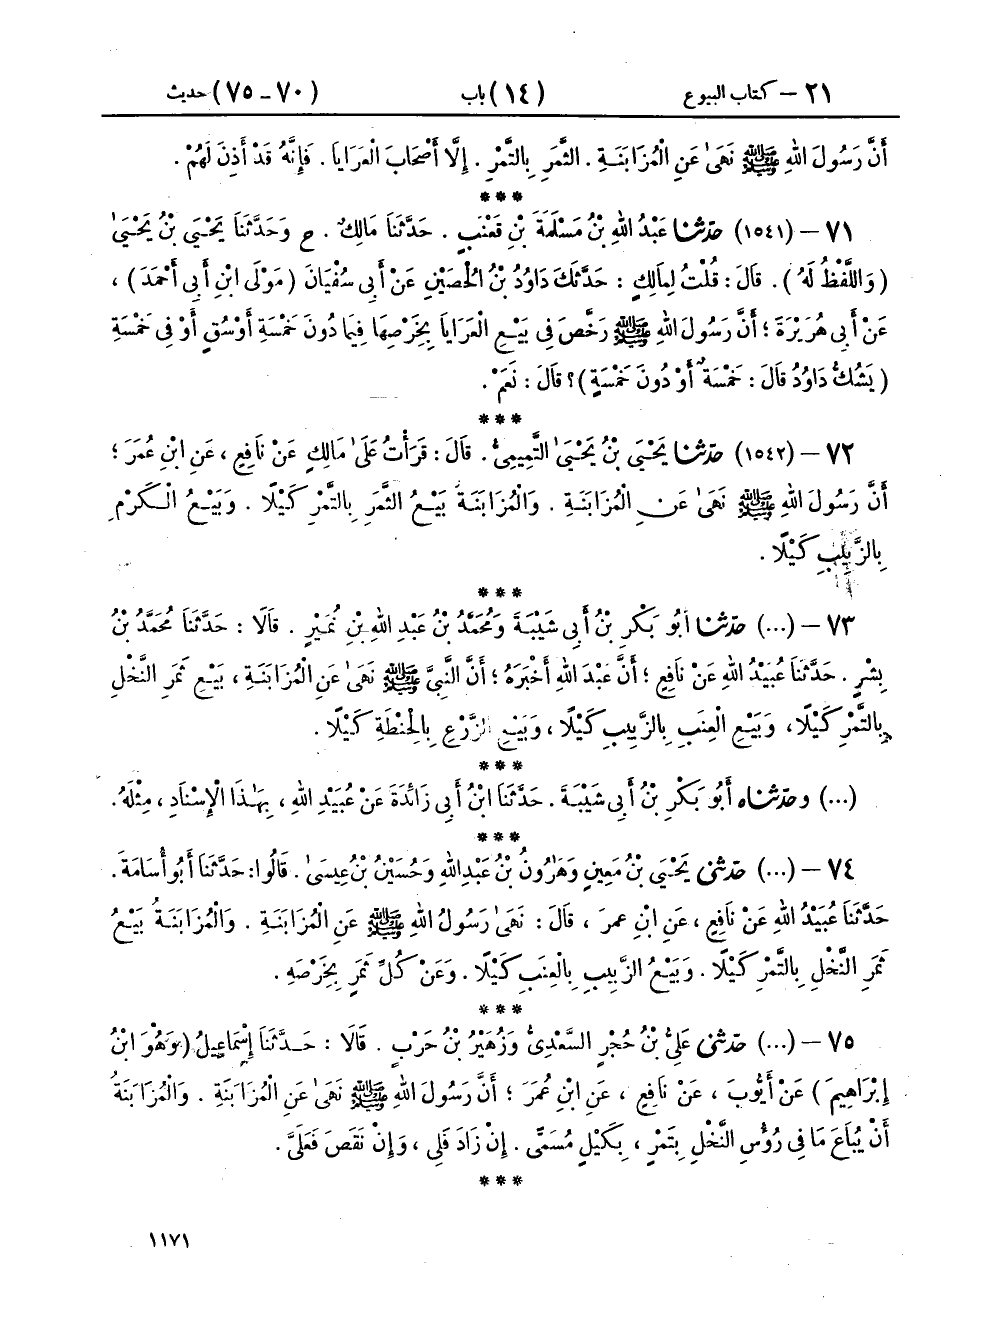 ٢١ – كتاب البيوع (١٤) باب (٧٠ – ٧٥) حديث
أَنَّ رَسُولَ اللهِ ﷺ نَهَىٰ عَنِ الْمُزَابَنَةِ . الثَّمَرِ بِالتَّمْرِ . إِلَّا أَصْحَابَ الْعَرَايَا . فَإِنَّهُ قَدْ أَذِنَ لَهُمْ .
***
٧١ – (١٥٤١) حدّثنا عَبْدُ اللهِ بْنُ مَسْلَمَةَ بْنِ قَعْنَبٍ . حَدَّثَنَا مَالِكٌ . ح وَحَدَّثَنَا يَحْيَى بْنُ يَحْيَىٰ
( وَاللَّفْظُ لَهُ ) . قَالَ : قُلْتُ لِمَالِكٍ : حَدَّثَكَ دَاوُدُ بْنُ الْحُصَيْنِ عَنْ أَبِي سُفْيَانَ ( مَوْلَى ابْنِ أَبِي أَحْمَدَ ) ،
عَنْ أَبِي هُرَيْرَةَ ؛ أَنَّ رَسُولَ اللهِ ﷺ رَخَّصَ فِي بَيْعِ الْعَرَايَا بِخَرْصِهَا فِيمَا دُونَ خَمْسَةِ أَوْسُقٍ أَوْ فِي خَمْسَةِ
( يَشُكُّ دَاوُدُ قَالَ : خَمْسَةٌ أَوْ دُونَ خَمْسَةٍ ) ؟ قَالَ : نَعَمْ .
***
٧٢ – (١٥٤٢) حدّثنا يَحْيَى بْنُ يَحْيَىٰ التَّمِيمِيُّ . قَالَ : قَرَأْتُ عَلَىٰ مَالِكٍ عَنْ نَافِعٍ ، عَنِ ابْنِ عُمَرَ ؛
أَنَّ رَسُولَ اللهِ ﷺ نَهَىٰ عَنِ الْمُزَابَنَةِ . وَالْمُزَابَنَةُ بَيْعُ الثَّمَرِ بِالتَّمْرِ كَيْلًا . وَبَيْعُ الْكَرْمِ
بِالزَّبِيبِ كَيْلًا .
***
٧٣ – (...) حدّثنا أَبُو بَكْرِ بْنُ أَبِي شَيْبَةَ وَمُحَمَّدُ بْنُ عَبْدِ اللهِ بْنِ نُمَيْرٍ . قَالَا : حَدَّثَنَا مُحَمَّدُ بْنُ
بِشْرٍ . حَدَّثَنَا عُبَيْدُ اللهِ عَنْ نَافِعٍ ؛ أَنَّ عَبْدَ اللهِ أَخْبَرَهُ ؛ أَنَّ النَّبِيَّ ﷺ نَهَىٰ عَنِ الْمُزَابَنَةِ ، بَيْعِ ثَمَرِ النَّخْلِ
بِالتَّمْرِ كَيْلًا ، وَبَيْعِ الْعِنَبِ بِالزَّبِيبِ كَيْلًا ، وَبَيْعِ الزَّرْعِ بِالْحِنْطَةِ كَيْلًا .
***
(...) وحدّثناه أَبُو بَكْرِ بْنُ أَبِي شَيْبَةَ . حَدَّثَنَا ابْنُ أَبِي زَائِدَةَ عَنْ عُبَيْدِ اللهِ ، بِهَٰذَا الْإِسْنَادِ ، مِثْلَهُ .
***
٧٤ – (...) حدّثني يَحْيَى بْنُ مَعِينٍ وَهَارُونُ بْنُ عَبْدِ اللهِ وَحُسَيْنُ بْنُ عِيسَى . قَالُوا : حَدَّثَنَا أَبُو أُسَامَةَ .
حَدَّثَنَا عُبَيْدُ اللهِ عَنْ نَافِعٍ ، عَنِ ابْنِ عُمَرَ ، قَالَ : نَهَىٰ رَسُولُ اللهِ ﷺ عَنِ الْمُزَابَنَةِ . وَالْمُزَابَنَةُ بَيْعُ
ثَمَرِ النَّخْلِ بِالتَّمْرِ كَيْلًا . وَبَيْعُ الزَّبِيبِ بِالْعِنَبِ كَيْلًا . وَعَنْ كُلِّ ثَمَرٍ بِخَرْصِهِ .
***
٧٥ – (...) حدّثني عَلِيُّ بْنُ حُجْرٍ السَّعْدِيُّ وَزُهَيْرُ بْنُ حَرْبٍ . قَالَا : حَدَّثَنَا إِسْمَاعِيلُ ( وَهُوَ ابْنُ
إِبْرَاهِيمَ ) عَنْ أَيُّوبَ ، عَنْ نَافِعٍ ، عَنِ ابْنِ عُمَرَ ؛ أَنَّ رَسُولَ اللهِ ﷺ نَهَىٰ عَنِ الْمُزَابَنَةِ . وَالْمُزَابَنَةُ
أَنْ يُبَاعَ مَا فِي رُؤُسِ النَّخْلِ بِتَمْرٍ ، بِكَيْلٍ مُسَمًّى . إِنْ زَادَ فَلِي ، وَإِنْ نَقَصَ فَعَلَيَّ .
***
١١٧١